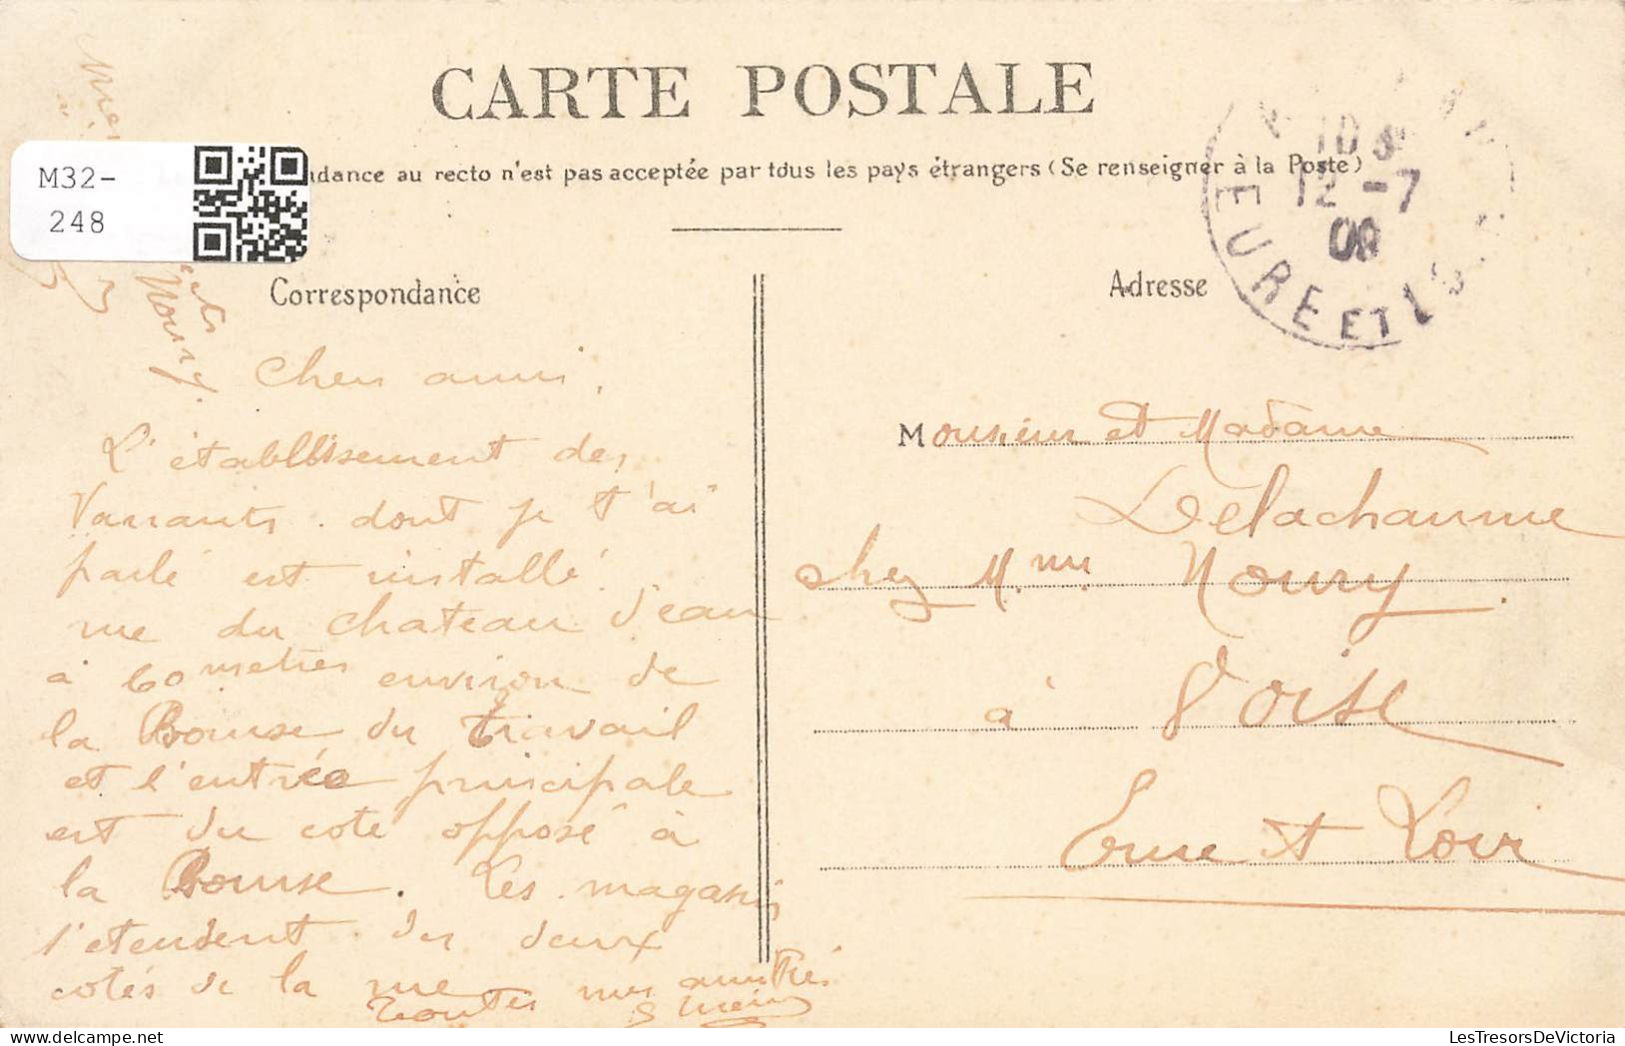 CARTE POSTALE
M32-
248
ndance au recto n'est pas acceptée par tous les pays étrangers (Se renseigner à la Poste)
12 -7
08
EURE ET
Correspondance
Adresse
Cher ami,
L'établissement des
Varrants. dont je t'ai
parlé est installé
rue du chateau d'eau
à 60 metres environ de
la Bourse du travail
et l'entrée principale
est du cote opposé à
la Bourse. Les magasins
s'etendent du deux
cotés de la rue
toutes mes amitiés
Monsieur et Madame
Delachaume
chez Mme Noury
à Voise
Eure et Loir
LesTresorsDeVictoria